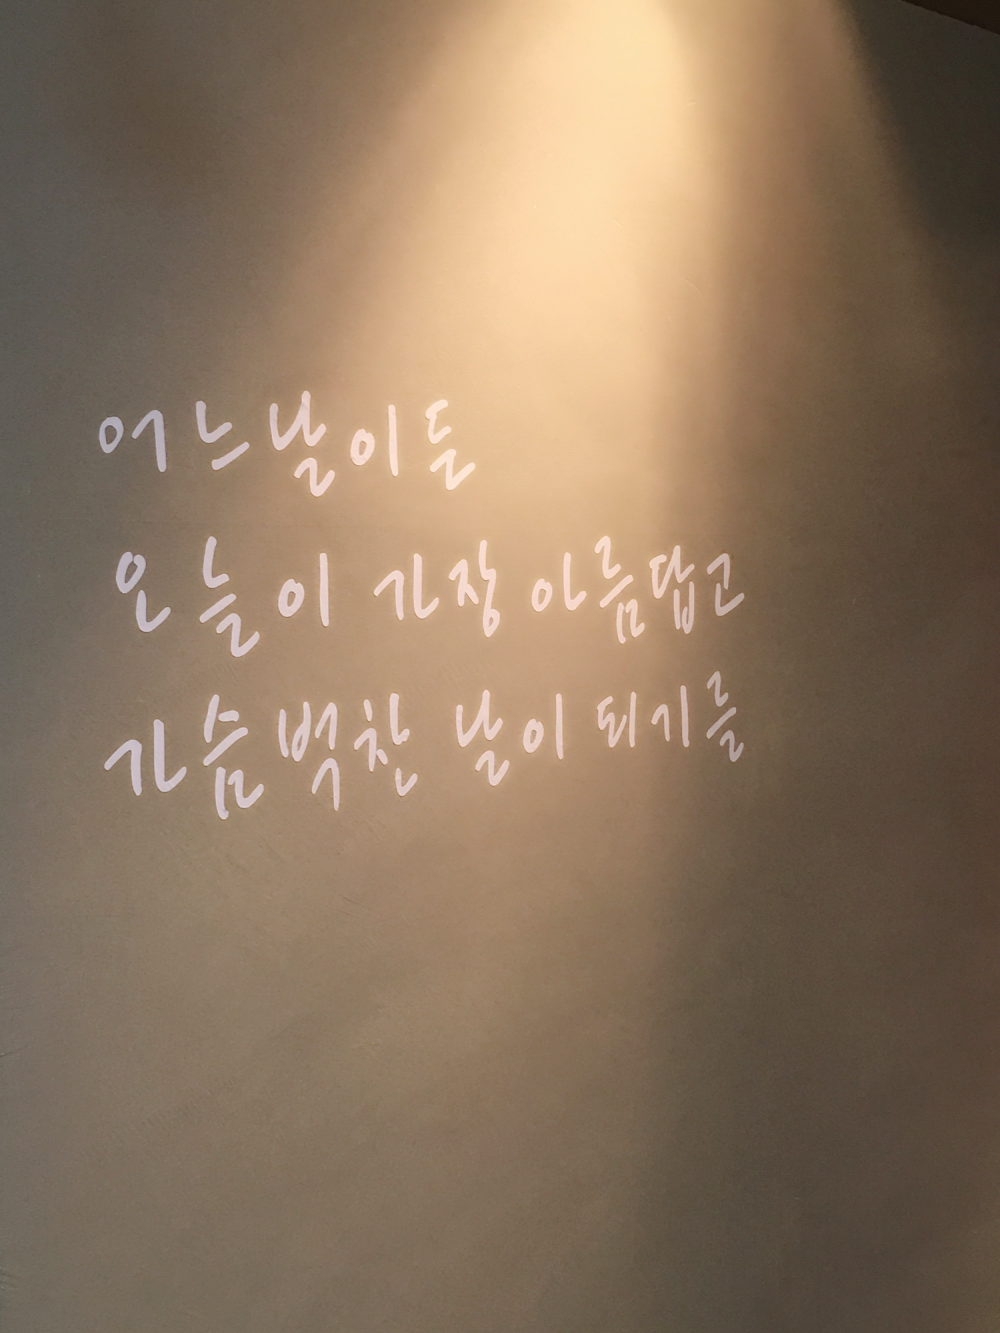 어느날이든
오늘이 가장 아름답고
가슴벅찬 날이 되기를